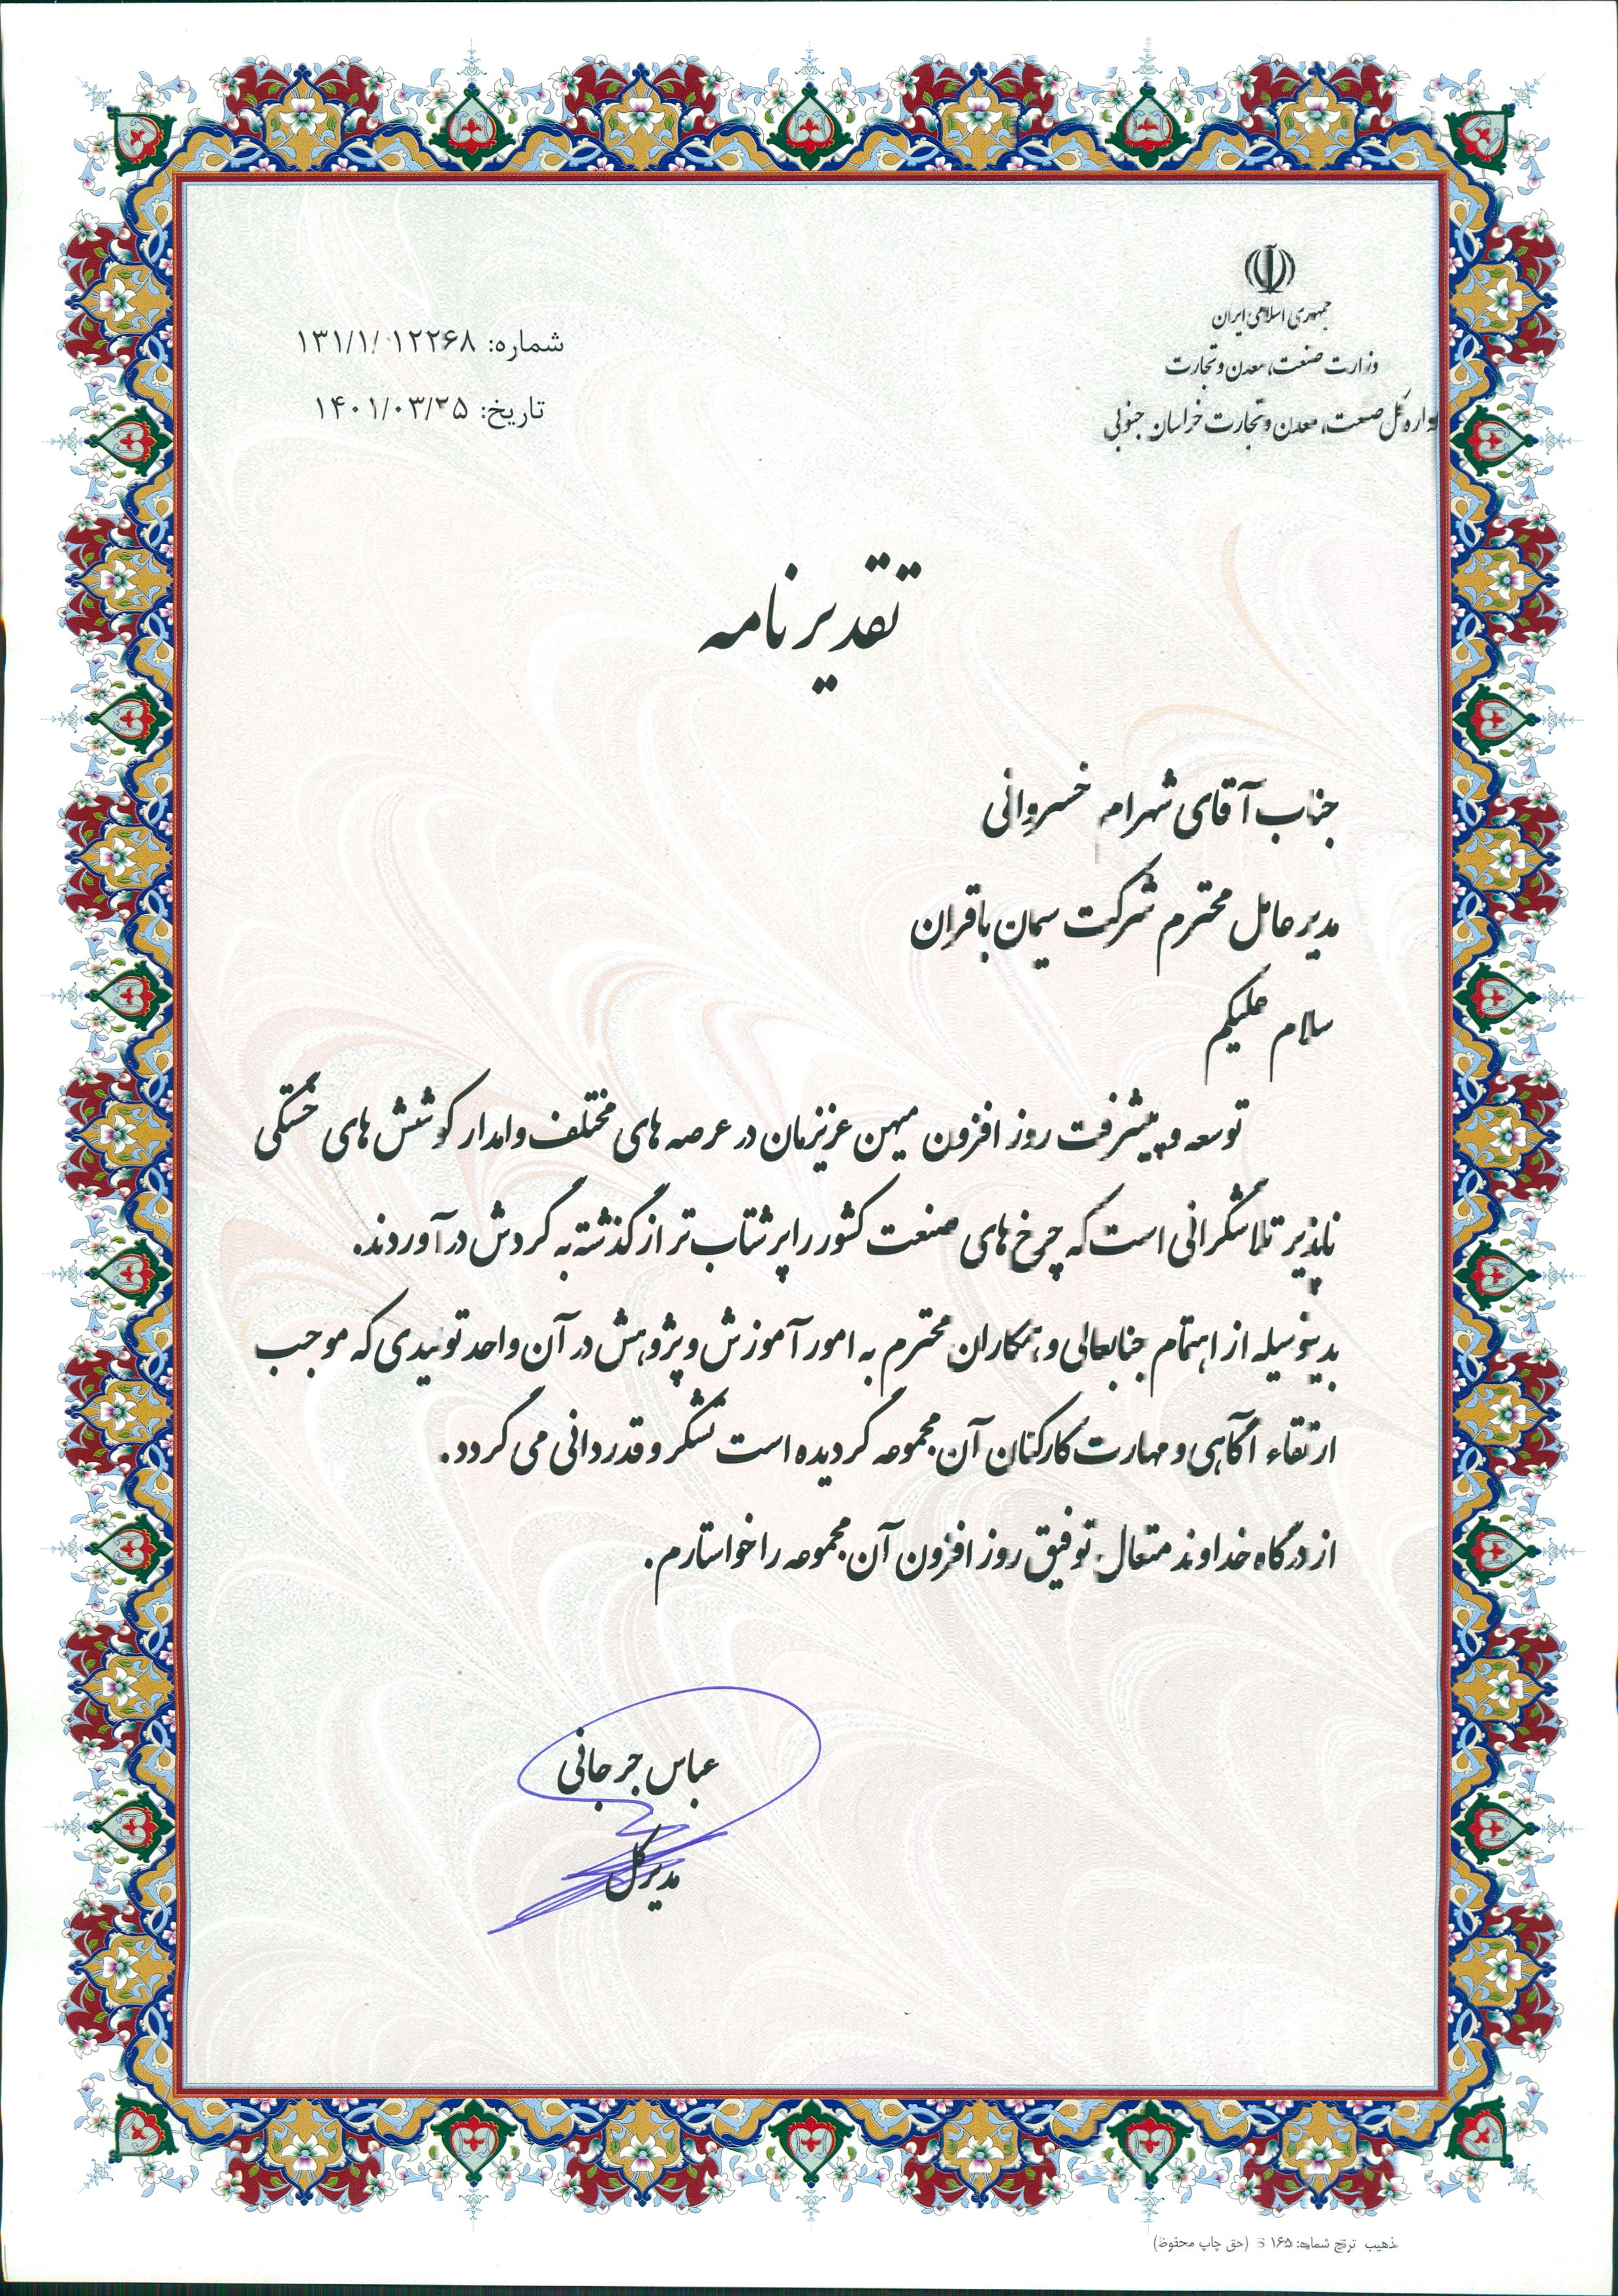 جمهوری اسلامی ایران
وزارت صنعت، معدن و تجارت
اداره کل صنعت، معدن و تجارت خراسان جنوبی
شماره: ۱۳۱/۱/۱۲۲۶۸
تاریخ: ۱۴۰۱/۰۳/۲۵
تقدیرنامه
جناب آقای شهرام خسروانی
مدیرعامل محترم شرکت سیمان باقران
سلام علیکم
توسعه و پیشرفت روز افزون میهن عزیزمان در عرصه های مختلف وامدار کوشش های خستگی
ناپذیر تلاشگرانی است که چرخ های صنعت کشور را پرشتاب تر از گذشته به گردش درآوردند.
بدینوسیله از اهتمام جنابعالی و همکاران محترم به امور آموزش و پژوهش در آن واحد تولیدی که موجب
ارتقاء آگاهی و مهارت کارکنان آن مجموعه گردیده است تشکر و قدردانی می گردد.
از درگاه خداوند متعال توفیق روز افزون آن مجموعه را خواستارم.
عباس جرجانی
مدیرکل
تذهیب ترنج شماره: ۱۶۵ S (حق چاپ محفوظ)